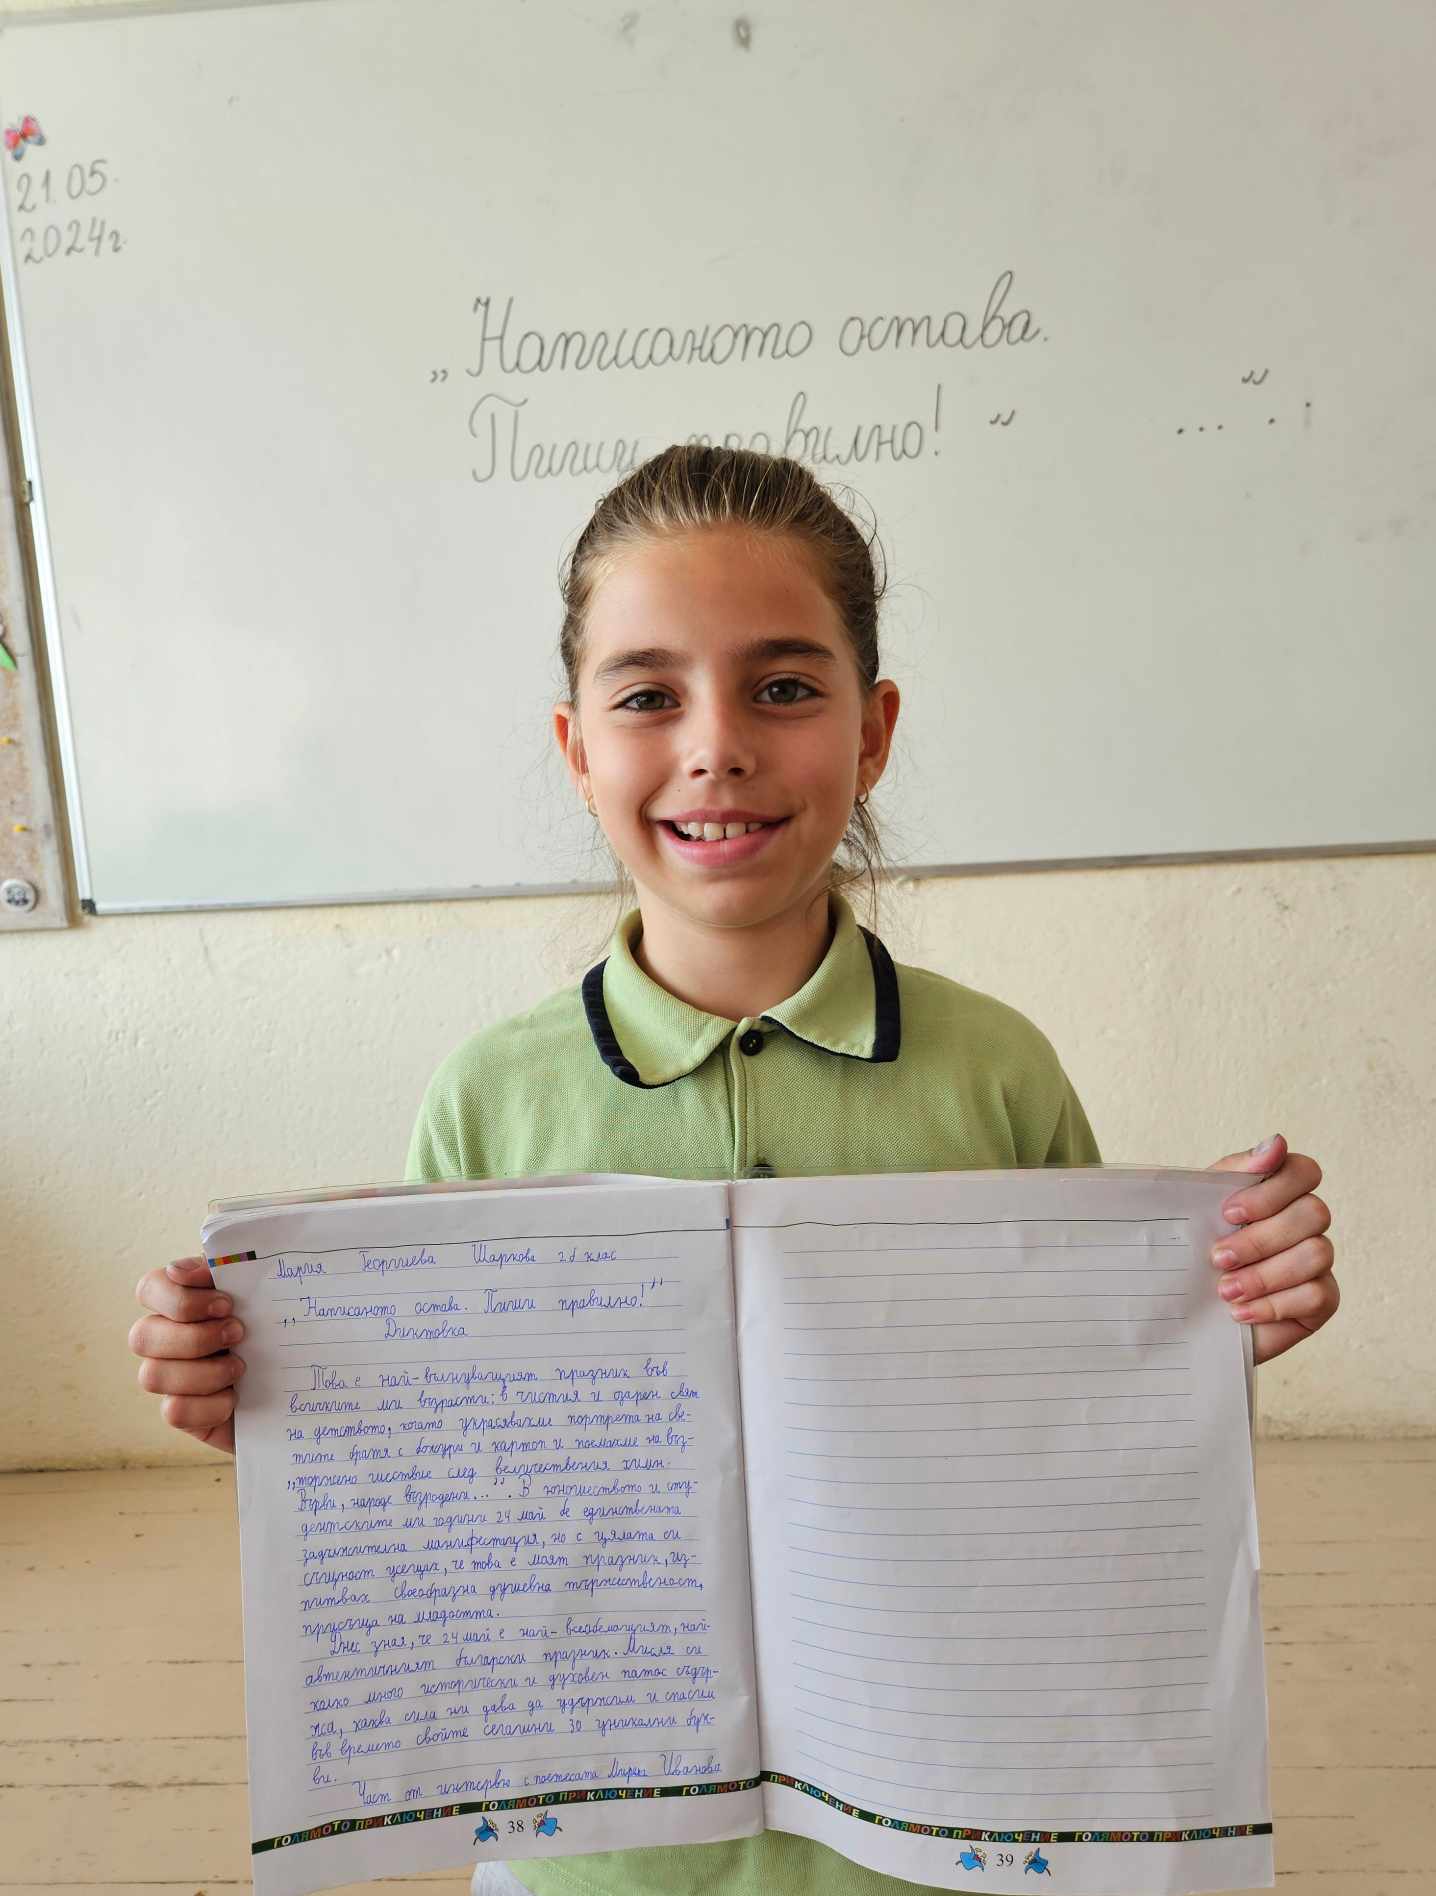 21.05.
2024г.
„Написаното остава.
Пиши правилно!“ ...“.
Мария Георгиева Шаркова 2б клас
„Написаното остава. Пиши правилно!“
Диктовка
Това е най-вълнуващият празник във
всичките ми възрасти: в чистия и озарен свят
на детството, когато украсявахме портрета на све-
тите братя с божури и картон и поемахме на въз-
„торжено шествие след величествения химн.
Върви, народе възродени...“. В юношеството и сту-
дентските ми години 24 май бе единствената
задължителна манифестация, но с цялата си
същност усещах, че това е моят празник, из-
питвах своеобразна душевна тържественост,
присъща на младостта.
Днес зная, че 24 май е най-всеобемащият, най-
автентичният български празник. Мисля си
колко много исторически и духовен патос съдър-
жа, каква сила ни дава да удържим и спасим
във времето своите сегашни 30 уникални бук-
ви.
Част от интервю с поетесата Миряна Иванова
ГОЛЯМОТО ПРИКЛЮЧЕНИЕ ГОЛЯМОТО ПРИКЛЮЧЕНИЕ ГОЛЯМОТО ПРИКЛЮЧЕНИЕ ГОЛЯМОТО ПРИКЛЮЧЕНИЕ ГОЛЯМОТО ПРИКЛЮЧЕНИЕ
38
39